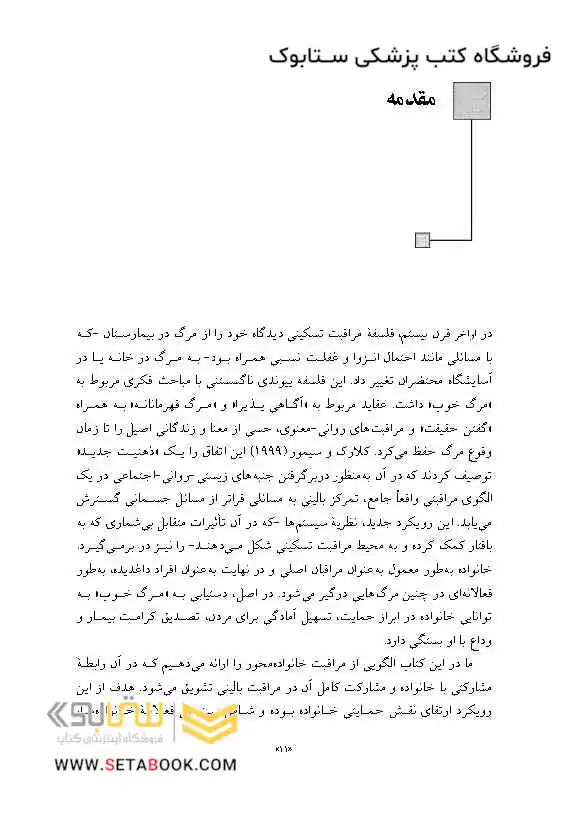 فروشگاه کتب پزشکی ستابوک
مقدمه
در اواخر قرن بیستم، فلسفهٔ مراقبت تسکینی دیدگاه خود را از مرگ در بیمارستان -که
با مسائلی مانند احتمال انزوا و غفلت نسبی همراه بود- به مرگ در خانه یا در
آسایشگاه محتضران تغییر داد. این فلسفه پیوندی ناگسستنی با مباحث فکری مربوط به
«مرگ خوب» داشت. عقاید مربوط به «آگاهی پذیرا» و «مرگ قهرمانانه» به همراه
«گفتن حقیقت» و مراقبت‌های روانی-معنوی، حسی از معنا و زندگانی اصیل را تا زمان
وقوع مرگ حفظ می‌کرد. کلارک و سیمور (۱۹۹۹) این اتفاق را یک «ذهنیت جدید»
توصیف کردند که در آن به‌منظور دربرگرفتن جنبه‌های زیستی-روانی-اجتماعی در یک
الگوی مراقبتی واقعاً جامع، تمرکز بالینی به مسائلی فراتر از مسائل جسمانی گسترش
می‌یابد. این رویکرد جدید، نظریهٔ سیستم‌ها -که در آن تأثیرات متقابل بی‌شماری که به
بافتار کمک کرده و به محیط مراقبت تسکینی شکل می‌دهند- را نیز در برمی‌گیرد.
خانواده به‌طور معمول به‌عنوان مراقبان اصلی و در نهایت به‌عنوان افراد داغدیده، به‌طور
فعالانه‌ای در چنین مرگ‌هایی درگیر می‌شود. در اصل، دستیابی به «مرگ خوب» به
توانایی خانواده در ابراز حمایت، تسهیل آمادگی برای مردن، تصدیق کرامت بیمار و
وداع با او بستگی دارد.
ما در این کتاب الگویی از مراقبت خانواده‌محور را ارائه می‌دهیم که در آن رابطهٔ
مشارکتی با خانواده و مشارکت کامل آن در مراقبت بالینی تشویق می‌شود. هدف از این
رویکرد ارتقای نقش حمایتی خانواده بوده و
ستابوک
فروشگاه اینترنتی کتاب
«۱۱»
WWW.SETABOOK.COM